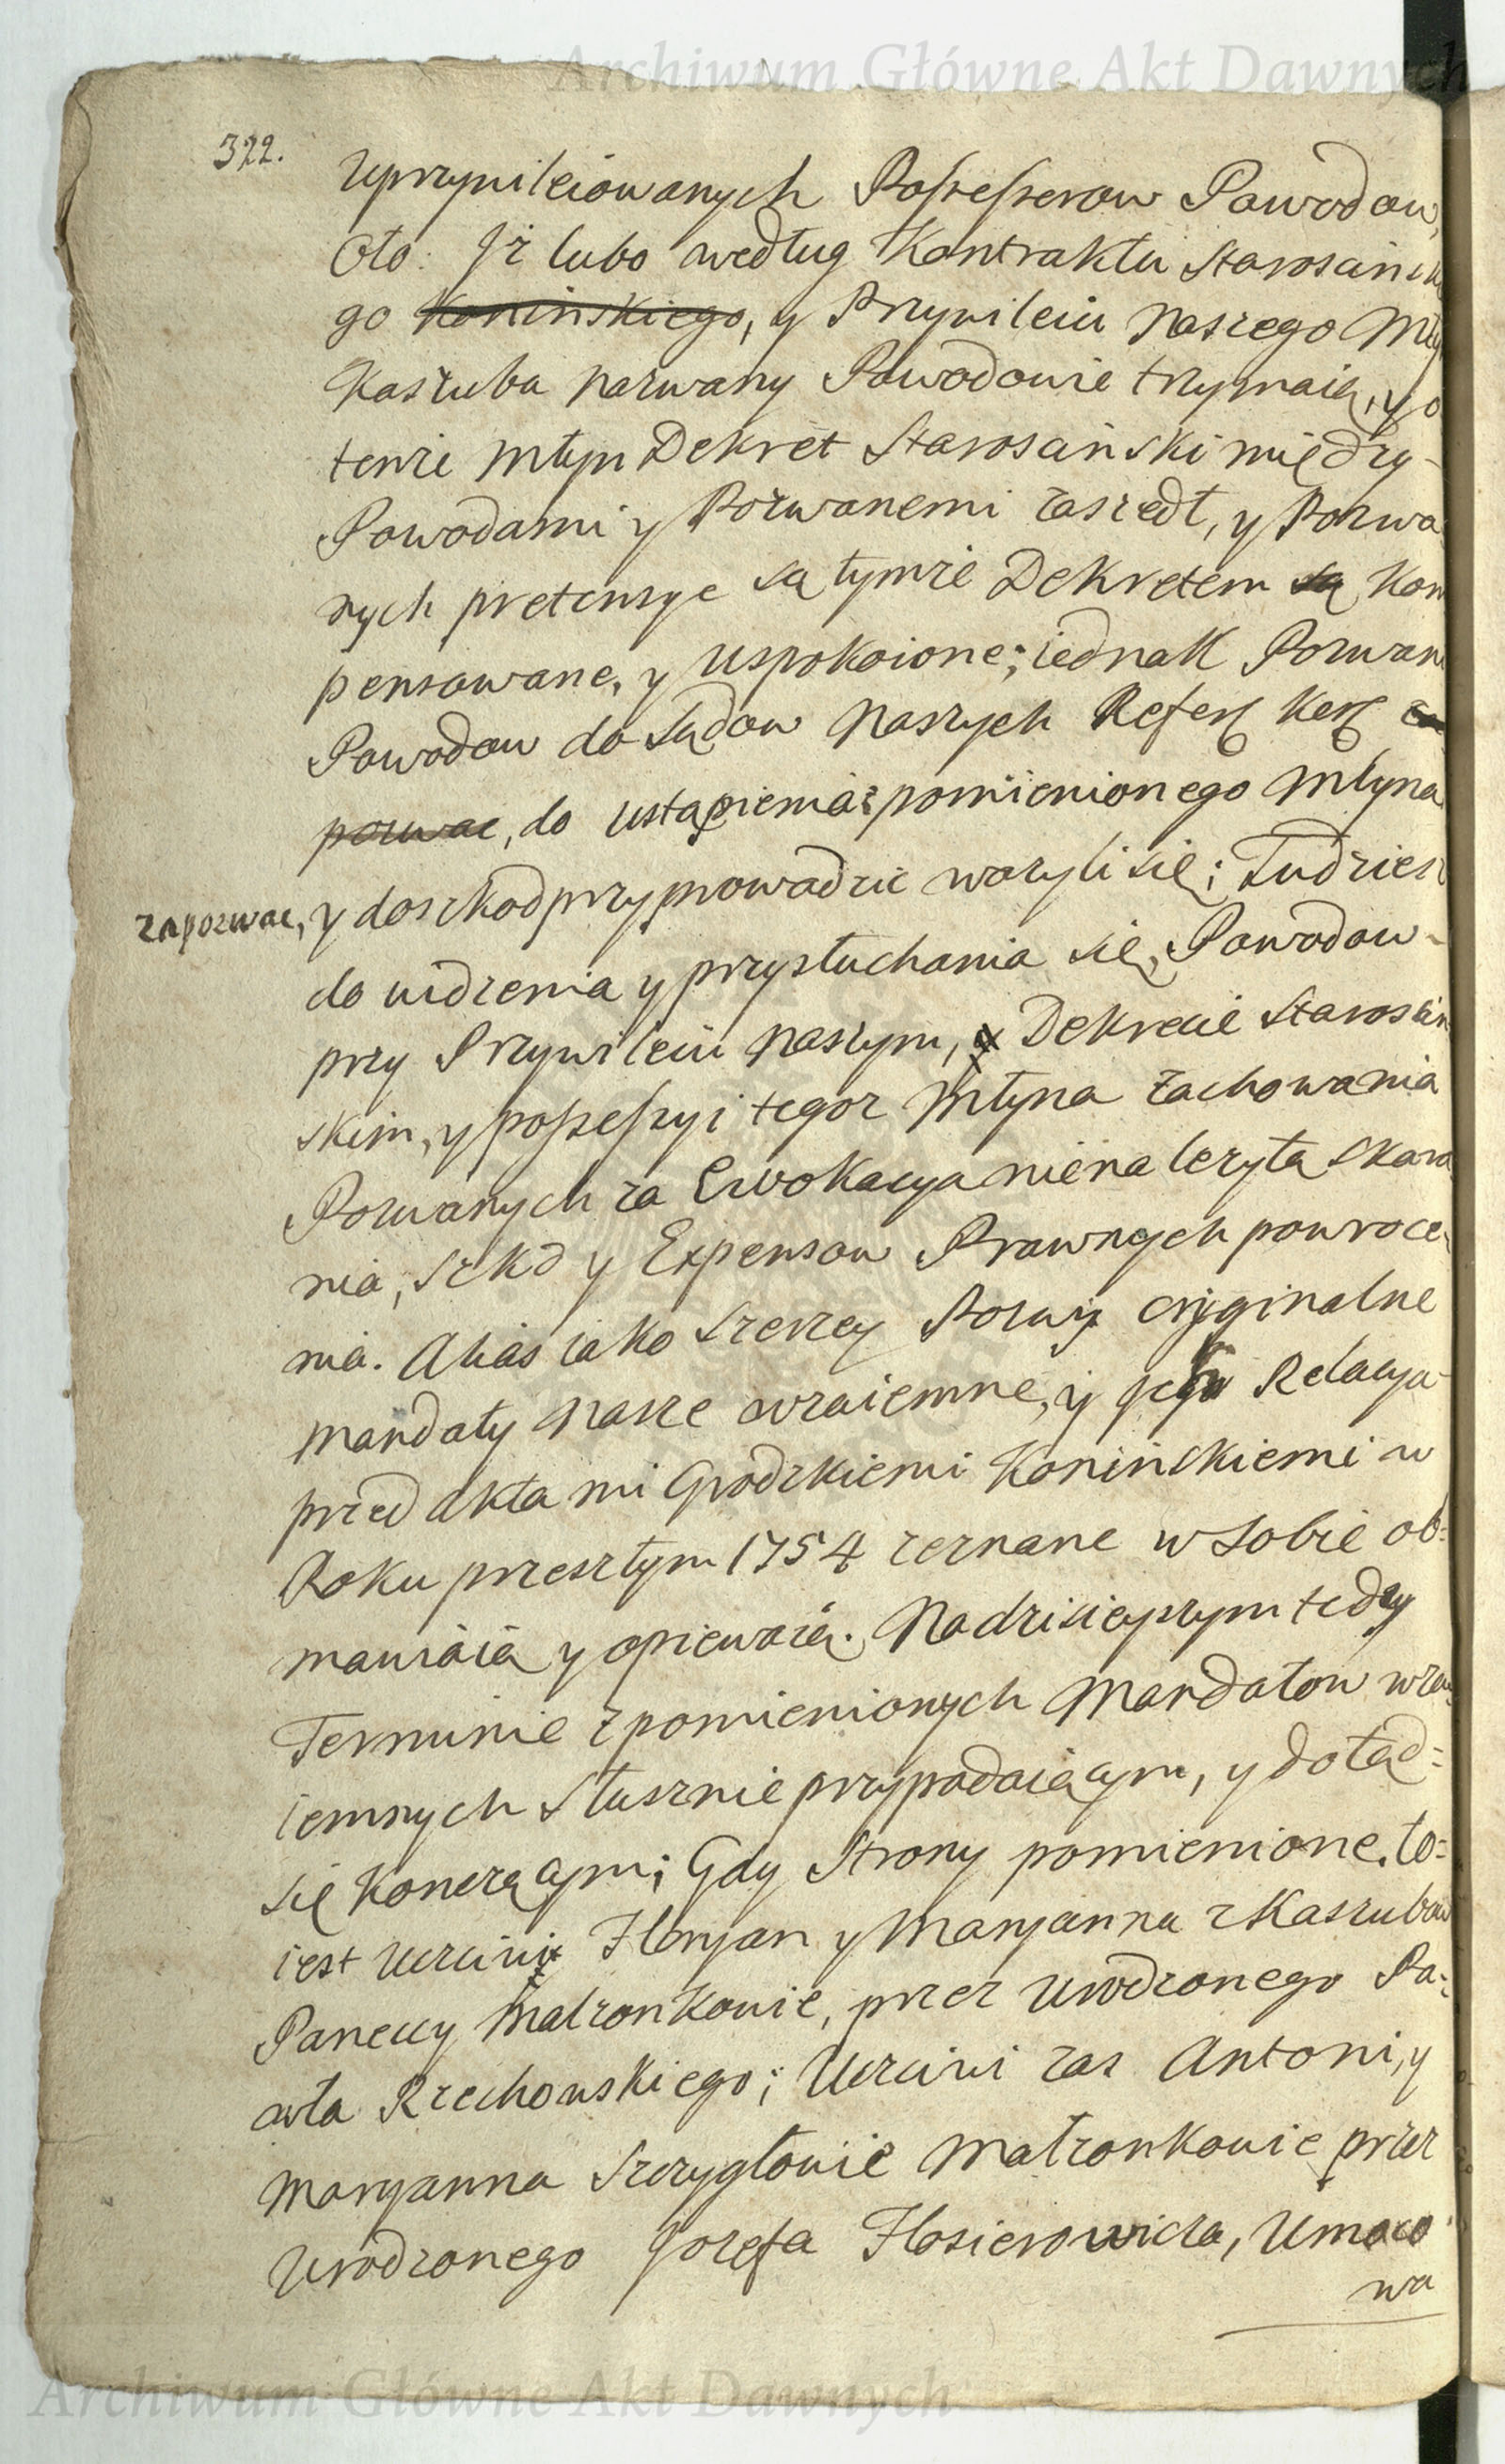 Archiwum Główne Akt Dawnych
322.
Uprzywileiowanych Possessorow Powodow,
Oto: Jż lubo według Kontraktu Starosciń
go Konińskiego, y Przywileiu Naszego Mły
Kaszuba nazwany Powodowie trzymaią, y o
tenże Młyn Dekret Starosciński między
Powodami y Pozwanemi zaszedł, y Pozwa
nych pretensye są tymże Dekretem są Kom
pensowane, y uspokoione; iednak Pozwani
Powodow do Sądow Naszych Refer Ker
pozwać, do ustąpienia pomienionego Młyna
zapozwac, y do szkod przyprowadzić ważyli się; Tudziesz
do widzenia y przysłuchania się, Powodow
przy Przywileiu Naszym, y Dekrecie Starościń
skim, y possessyi tegoż Młyna zachowania
Pozwanych za Ewokacyą nienależytą Skara
nia, Szkd y Expensow Prawnych powroce
nia. Alias iako szerzey Pozwy oryginalne
Mandaty Nasze wzaiemne, y Jch Relacya
przed Aktami Grodzkiemi Konińskiemi w
Roku przeszłym 1754 zeznane w Sobie ob=
mawiaią y opiewaią. Na dzisieyszym tedy
Terminie z pomienionych Mandatow wza
iemnych Słusznie przypadaiącym, y dotąd=
się Konczącym; Gdy Strony pomienione, to=
iest Uczciwi Floryan y Maryanna z Kaszubow
Paneccy Małżonkowie, przez Urodzonego Pa=
wła Rzechowskiego; Uczciwi zas Antoni, y
Maryanna Szczygłowie Małżonkowie przez
Urodzonego Jozefa Flosierowicza, Umoco
wa
Archiwum Główne Akt Dawnych